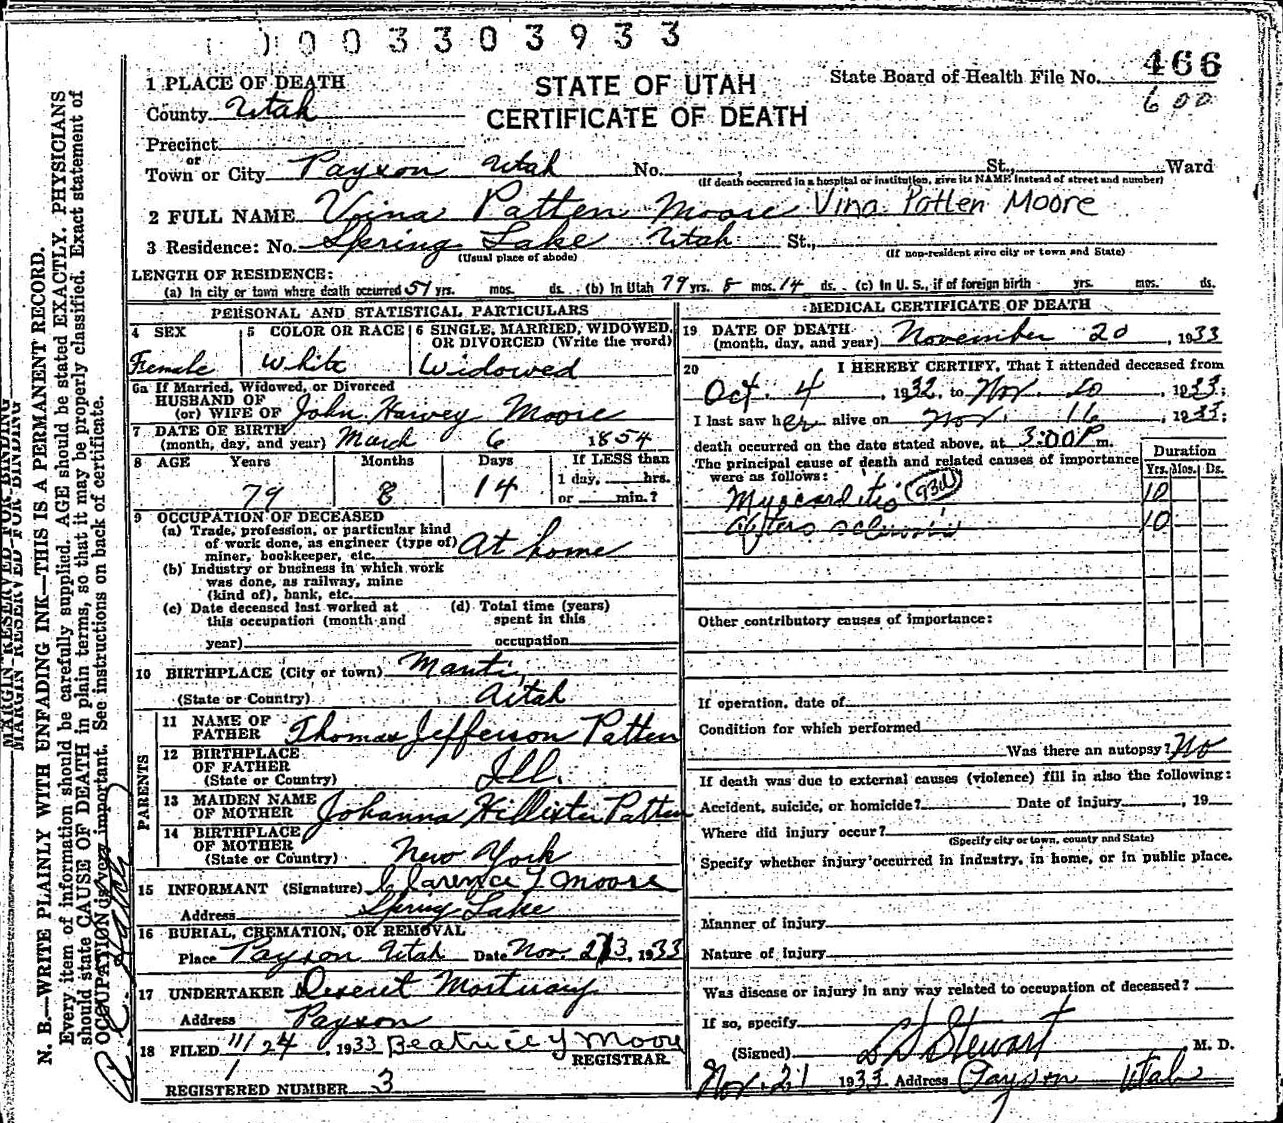 0 0 0 3 3 0 3 9 3 3
466
State Board of Health File No.
600
STATE OF UTAH
CERTIFICATE OF DEATH
1 PLACE OF DEATH
County Utah
Precinct
or
Town or City Payson Utah No. St., Ward
(If death occurred in a hospital or institution, give its NAME instead of street and number)
2 FULL NAME Vina Patten Moore Vina Patten Moore
3 Residence: No. Spring Lake Utah St.,
(Usual place of abode) (If non-resident give city or town and State)
LENGTH OF RESIDENCE:
(a) In city or town where death occurred 51 yrs. mos. ds. (b) In Utah 79 yrs. 8 mos. 14 ds. (c) In U. S., if of foreign birth yrs. mos. ds.
PERSONAL AND STATISTICAL PARTICULARS
4 SEX 5 COLOR OR RACE 6 SINGLE, MARRIED, WIDOWED,
OR DIVORCED (Write the word)
Female White Widowed
6a If Married, Widowed, or Divorced
HUSBAND OF
(or) WIFE OF John Harvey Moore
7 DATE OF BIRTH
(month, day, and year) March 6 1854
8 AGE Years Months Days If LESS than
1 day, hrs.
79 8 14 or min.?
9 OCCUPATION OF DECEASED
(a) Trade, profession, or particular kind
of work done, as engineer (type of)
miner, bookkeeper, etc. At home
(b) Industry or business in which work
was done, as railway, mine
(kind of), bank, etc.
(c) Date deceased last worked at (d) Total time (years)
this occupation (month and spent in this
year) occupation
10 BIRTHPLACE (City or town) Manti,
(State or Country) Utah
PARENTS
11 NAME OF
FATHER Thomas Jefferson Patten
12 BIRTHPLACE
OF FATHER
(State or Country) Ill.
13 MAIDEN NAME
OF MOTHER Johanna Hillister Patten
14 BIRTHPLACE
OF MOTHER
(State or Country) New York
15 INFORMANT (Signature) Clarence Y Moore
Address Spring Lake
16 BURIAL, CREMATION, OR REMOVAL
Place Payson Utah Date Nov. 23, 1933
17 UNDERTAKER Deseret Mortuary
Address Payson
18 FILED 11/24, 1933 Beatrice Y Moore
REGISTRAR.
REGISTERED NUMBER 3
MEDICAL CERTIFICATE OF DEATH
19 DATE OF DEATH
(month, day, and year) November 20, 1933
20 I HEREBY CERTIFY, That I attended deceased from
Oct. 4, 1932, to Nov. 20, 1933;
I last saw her alive on Nov. 16, 1933;
death occurred on the date stated above, at 3:00P m.
The principal cause of death and related causes of importance
were as follows:
Duration
Yrs. Mos. Ds.
Myocarditis 93d 10
10
Other contributory causes of importance:
If operation, date of
Condition for which performed
Was there an autopsy? No
If death was due to external causes (violence) fill in also the following:
Accident, suicide, or homicide? Date of injury, 19
Where did injury occur?
(Specify city or town, county and State)
Specify whether injury occurred in industry, in home, or in public place.
Manner of injury
Nature of injury
Was disease or injury in any way related to occupation of deceased?
If so, specify
(Signed) L D Stewart M. D.
Nov. 21 1933 Address Payson Utah
MARGIN RESERVED FOR BINDING
MARGIN RESERVED FOR BINDING
N. B.—WRITE PLAINLY WITH UNFADING INK—THIS IS A PERMANENT RECORD.
Every item of information should be carefully supplied. AGE should be stated EXACTLY. PHYSICIANS
should state CAUSE OF DEATH in plain terms, so that it may be properly classified. Exact statement of
OCCUPATION is very important. See instructions on back of certificate.